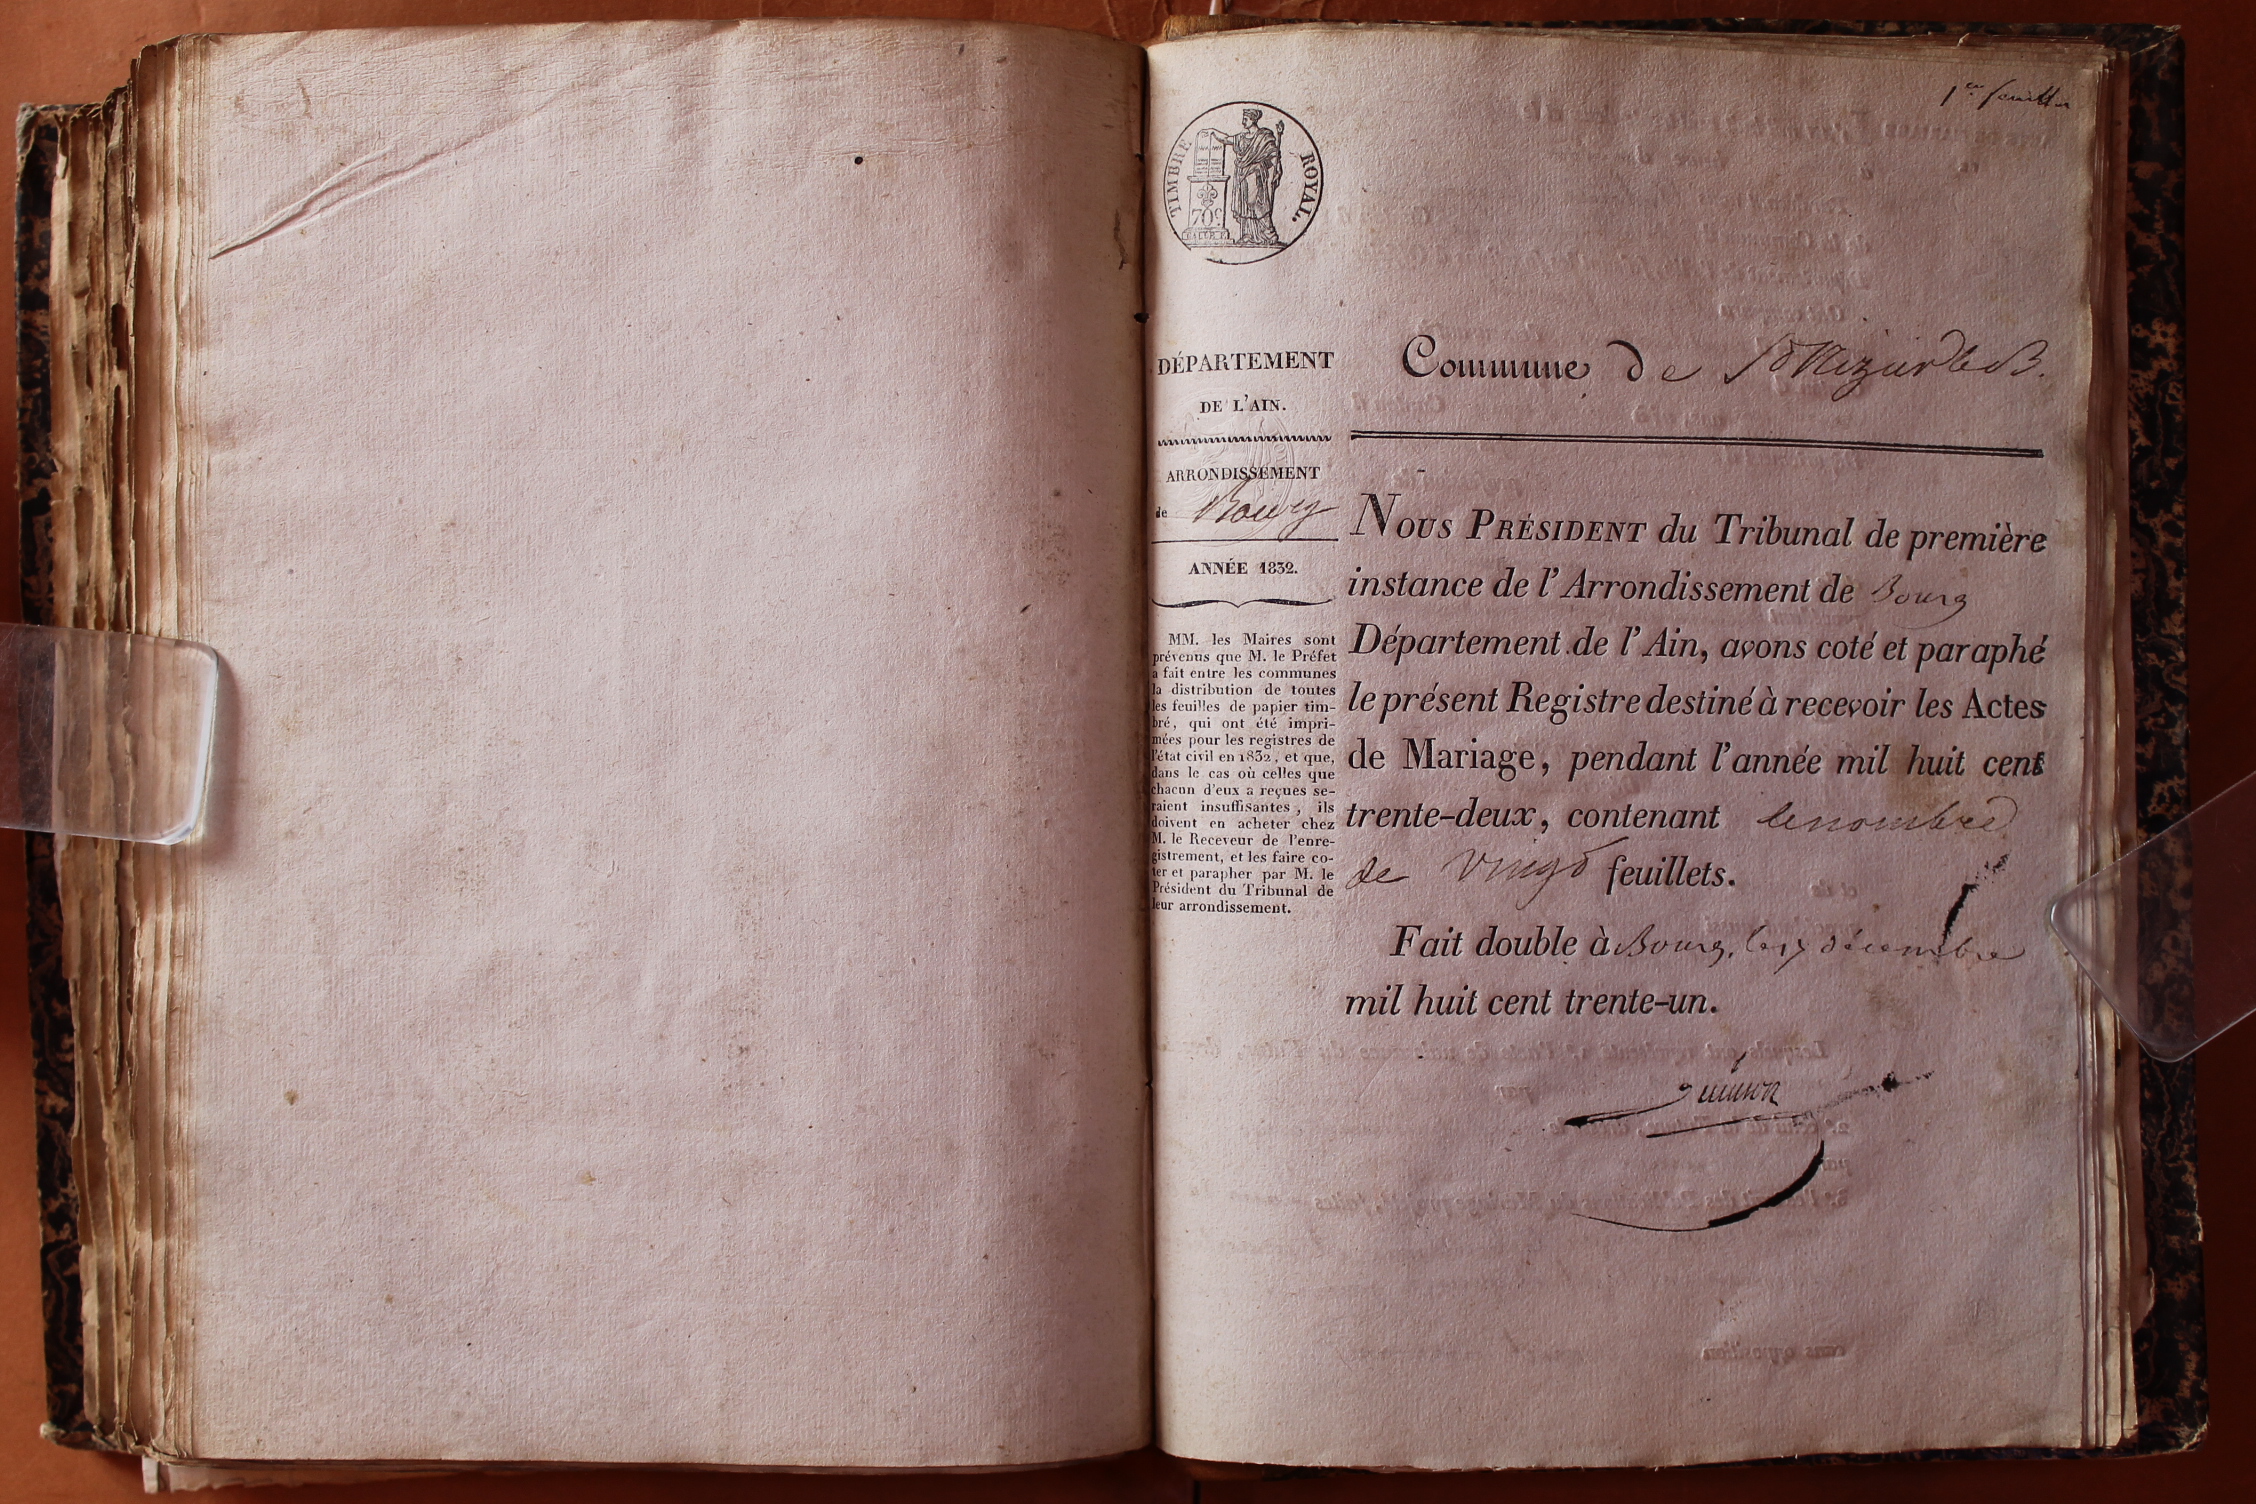 1er feuillet
TIMBRE ROYAL.
70c
DÉPARTEMENT
DE L'AIN.
ARRONDISSEMENT
de Bourg
ANNÉE 1832.
MM. les Maires sont
prévenus que M. le Préfet
a fait entre les communes
la distribution de toutes
les feuilles de papier tim-
bré, qui ont été impri-
mées pour les registres de
l'état civil en 1832, et que,
dans le cas où celles que
chacun d'eux a reçues se-
raient insuffisantes, ils
doivent en acheter chez
M. le Receveur de l'enre-
gistrement, et les faire co-
ter et parapher par M. le
Président du Tribunal de
leur arrondissement.
Commune de St Nizier le B.
NOUS PRÉSIDENT du Tribunal de première
instance de l'Arrondissement de Bourg
Département de l'Ain, avons coté et paraphé
le présent Registre destiné à recevoir les Actes
de Mariage, pendant l'année mil huit cent
trente-deux, contenant le nombre
de vingt feuillets.
Fait double à Bourg, le décembre
mil huit cent trente-un.